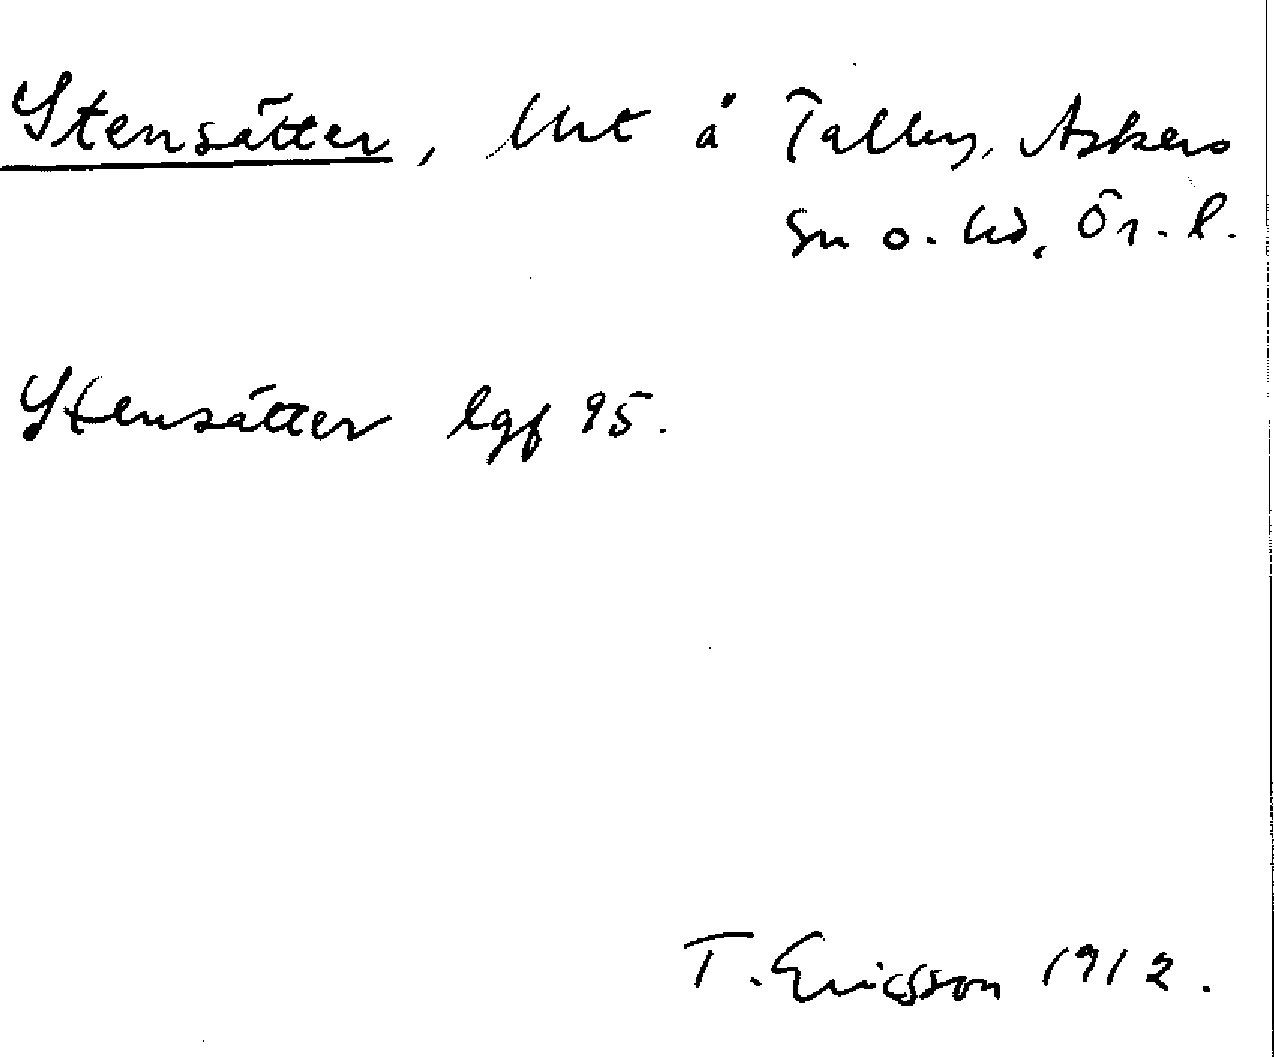 Stensätter, lht å Tallby, Askers
sn o. hd, Ör. l.
Stensätter lgf 95.
T. Ericsson 1912.